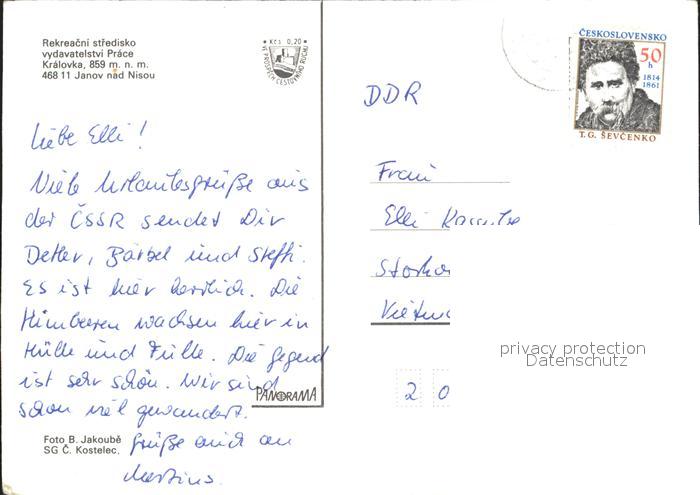 Rekreační středisko
vydavatelství Práce
Královka, 859 m. n. m.
468 11 Janov nad Nisou
Kčs 0,20
VE PROSPĚCH CESTOVNÍHO RUCHU
ČESKOSLOVENSKO
50
h
1814
1861
T. G. ŠEVČENKO
DDR
Liebe Elli!
Viele Urlaubsgrüße aus
der ČSSR sendet Dir
Detlev, Bärbel und Steffi.
Es ist hier herrlich. Die
Himbeeren wachsen hier in
Hülle und Fülle. Die Gegend
ist sehr schön. Wir sind
schon viel gewandert.
Grüße auch an
Martins.
Frau
Elli
Storko
Vietn
2 0
privacy protection
Datenschutz
PANORAMA
Foto B. Jakoubě
SG Č. Kostelec.